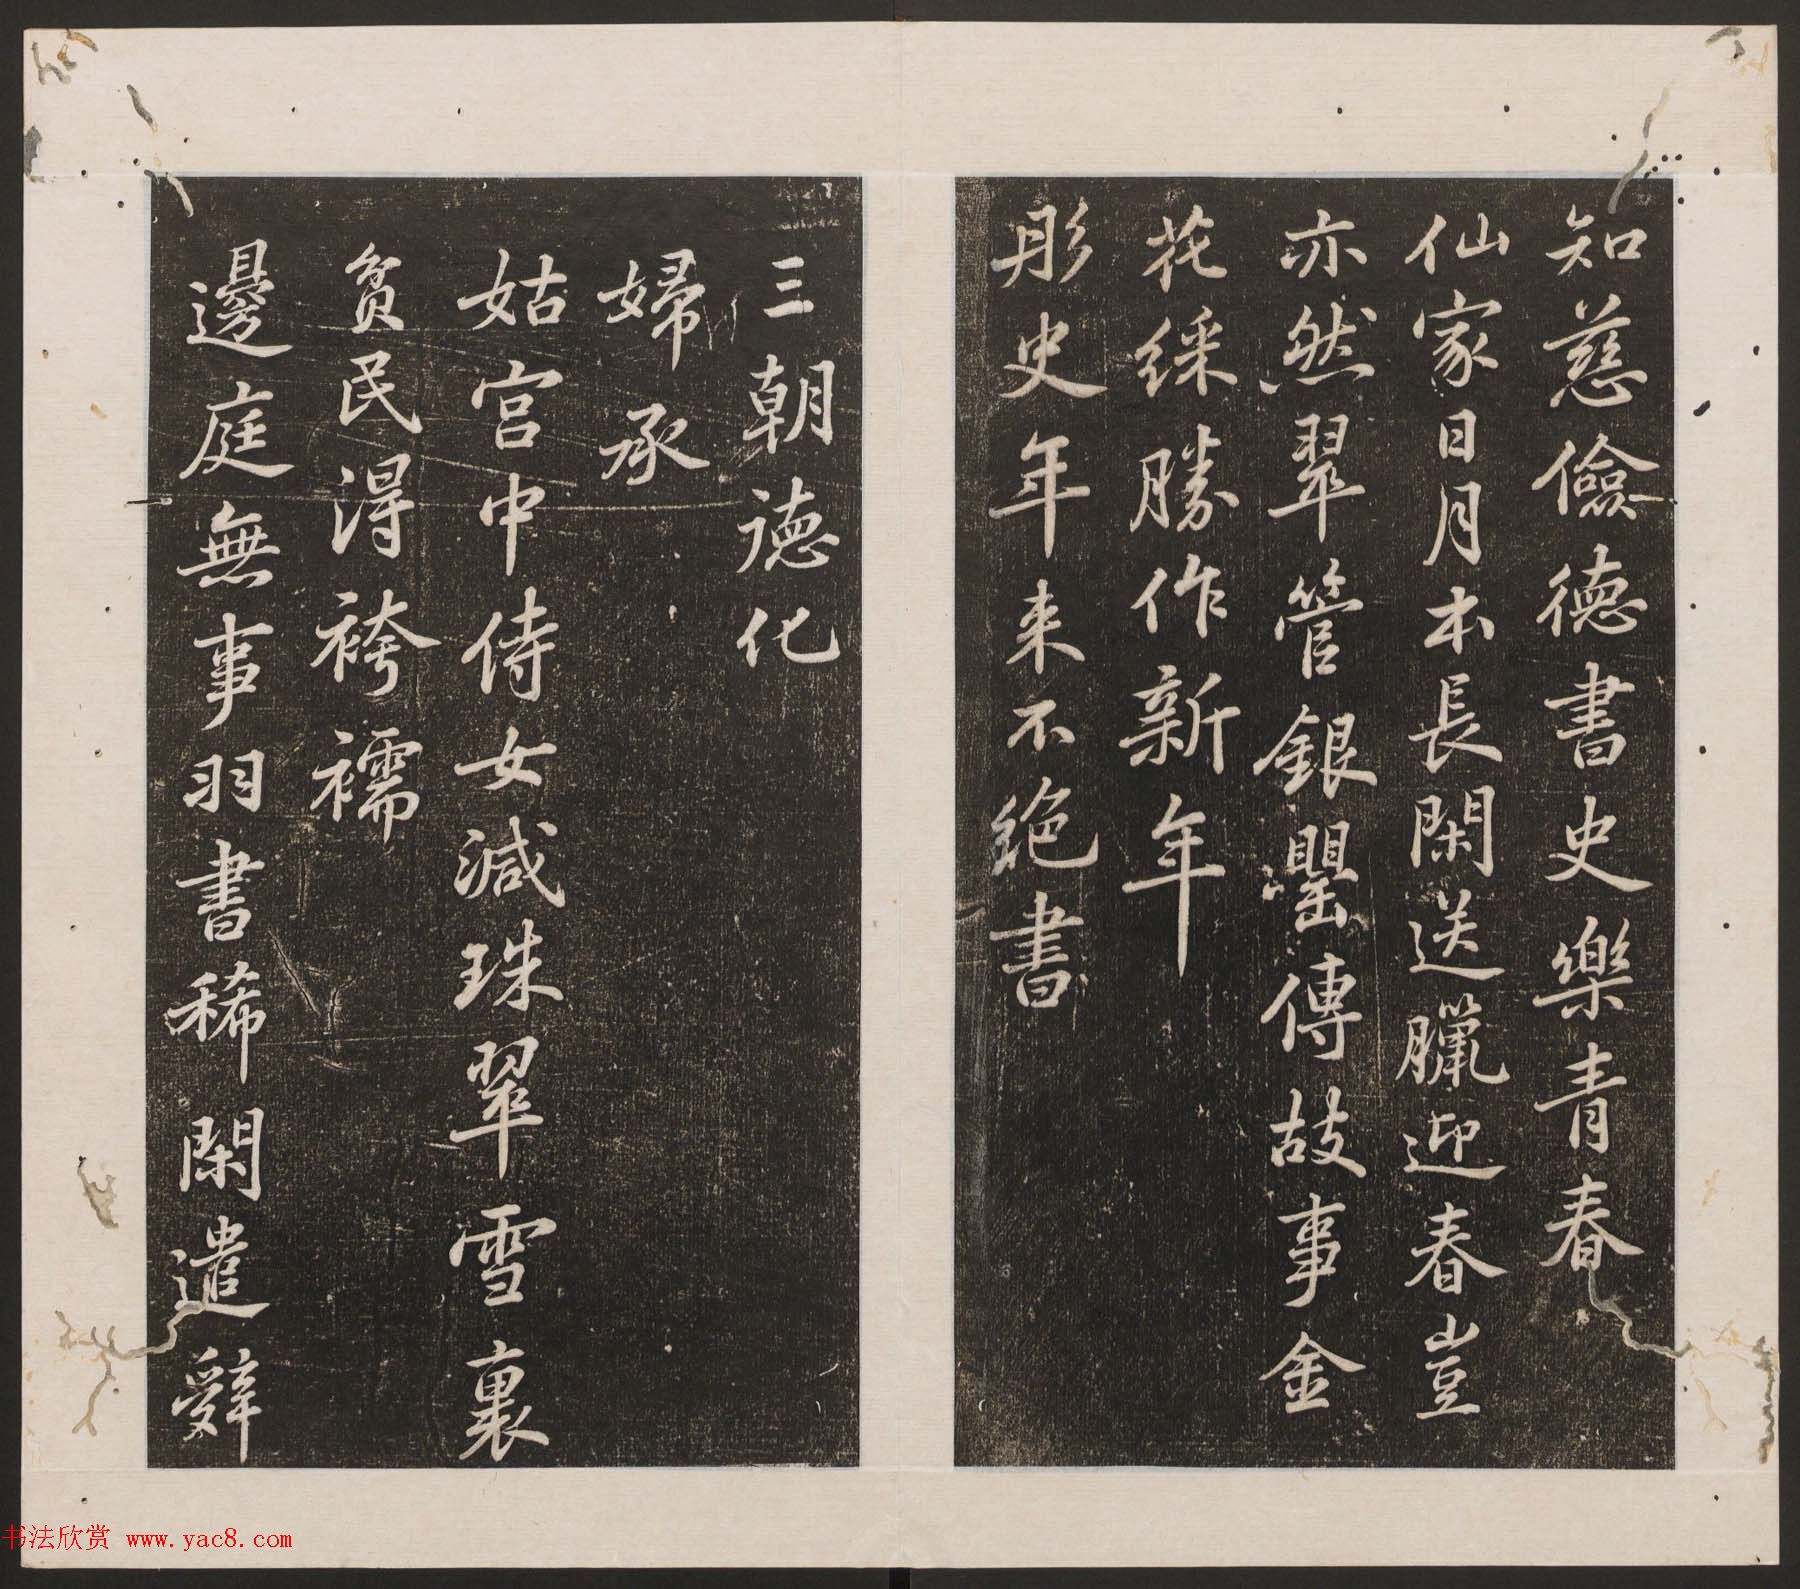 知慈儉德書史樂青春
仙家日月本長閑送臘迎春豈
亦然翠管銀罌傳故事金
花綵勝作新年
彤史年来不絶書
三朝德化
婦承
姑宮中侍女減珠翠雪裏
貧民得袴襦
邊庭無事羽書稀閑遣辭
书法欣赏 www.yac8.com